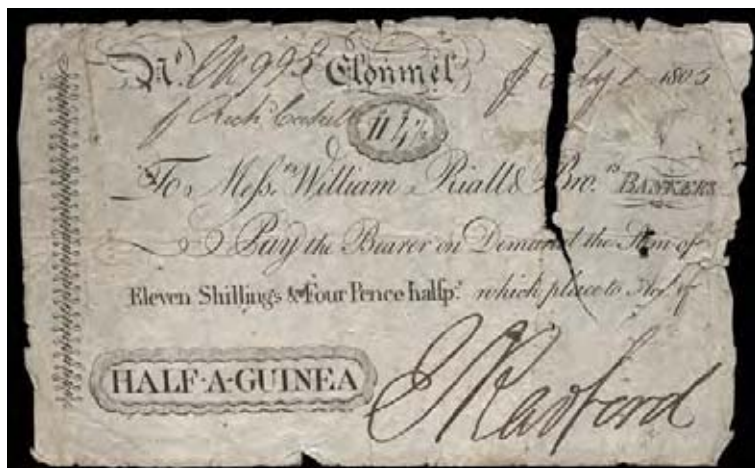 No. 995 Clonmel July 1 1805
11 4½
To Messrs. William Riall & Bros. BANKERS
Pay the Bearer on Demand the Sum of
Eleven Shillings & Four Pence halfpy. which place to Acct. of
HALF-A-GUINEA
Radford